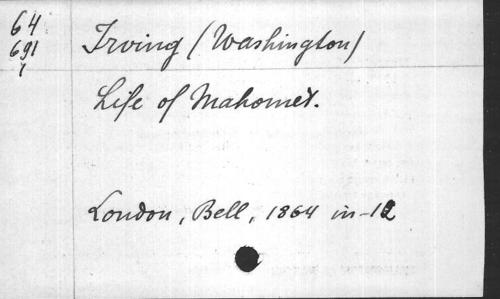 64
691
1
Irving (Washington)
Life of Mahomet.
London, Bell, 1864 in-12